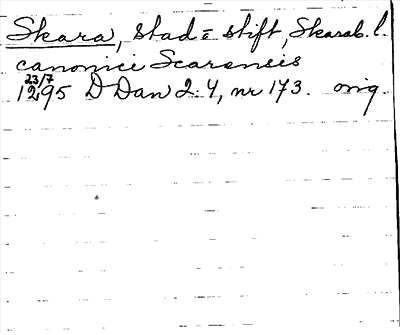 Skara, stad = stift, Skarab. l.
canonici Scarensis
23/7
1295 D Dan 2:4, nr 173. orig.